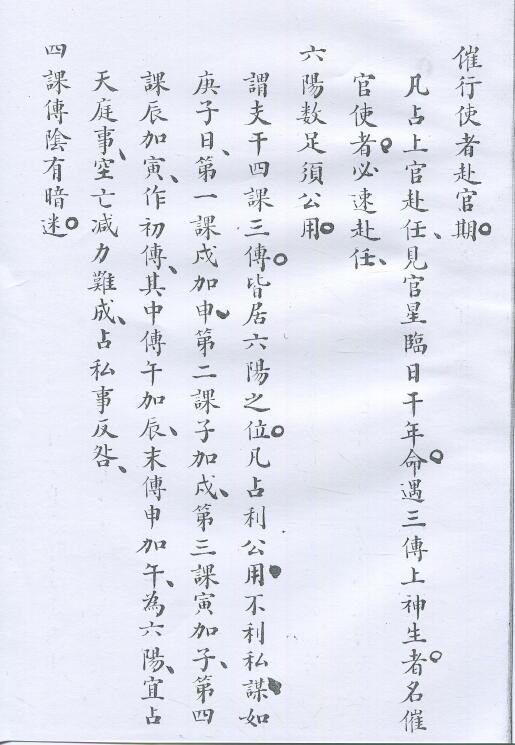 催行使者赴官期。
凡占上官赴任、見官星臨日干年命。遇三傳上神生者。名催
官使者。必速赴任、
六陽数足須公用。
謂支干四課三傳。皆居六陽之位。凡占利公用、不利私謀、如
庚子日、第一課戍加申、第二課子加戍、第三課寅加子、第四
課辰加寅、作初傳、其中傳午加辰、末傳申加午、為六陽、宜占
天庭事、空亡减力難成、占私事反咎、
四課傳陰有暗迷。